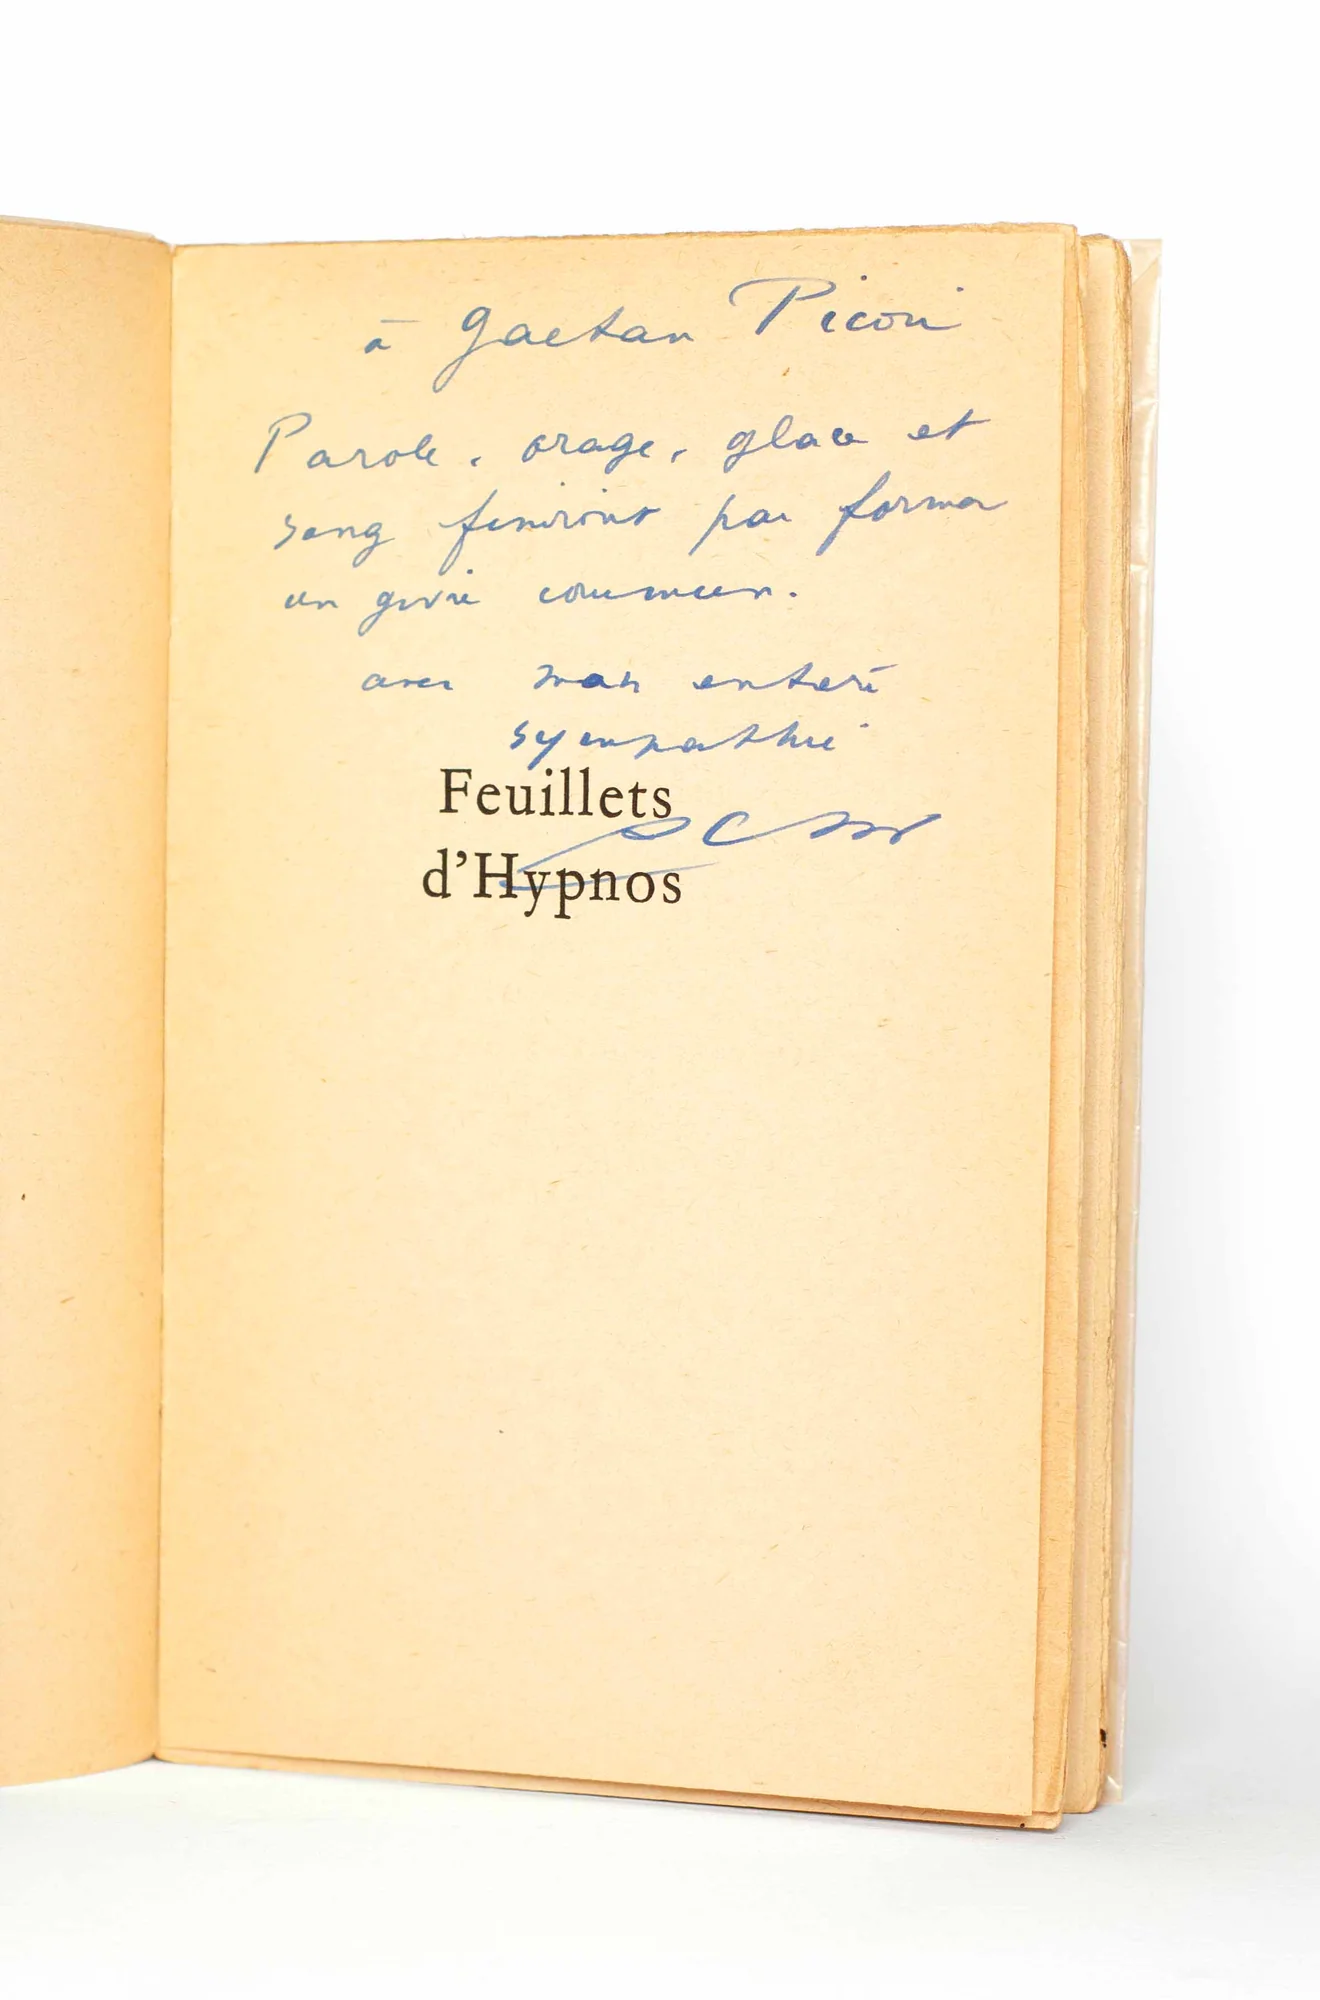 à Gaëtan Picon
Parole, orage, glace et
sang finiront par former
un givre commun.
avec mon entière
sympathie
Feuillets
R Char
d'Hypnos